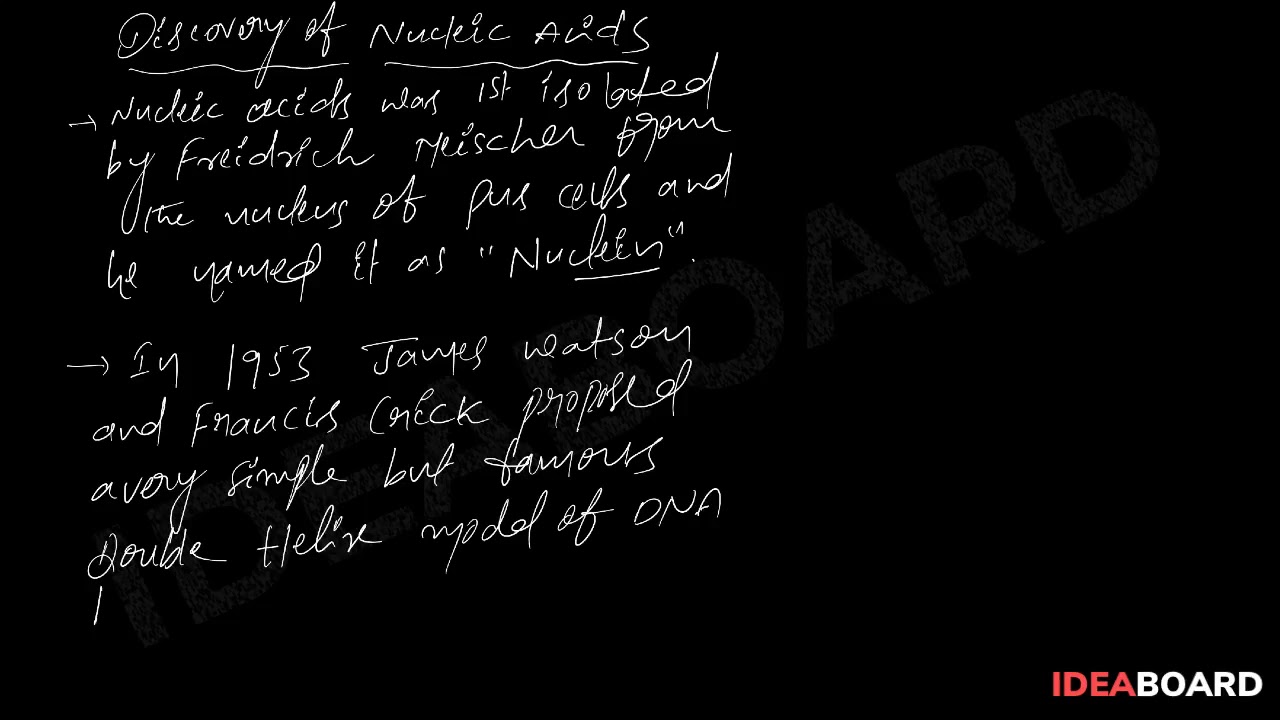 Discovery of Nucleic Acids
→ Nucleic acids was 1st isolated
by Freidrich Meischer from
the nucleus of pus cells and
he named it as "Nuclein".
→ In 1953 James watson
and Francis Crick proposed
a very simple but famous
Double Helix model of DNA
IDEABOARD
IDEABOARD